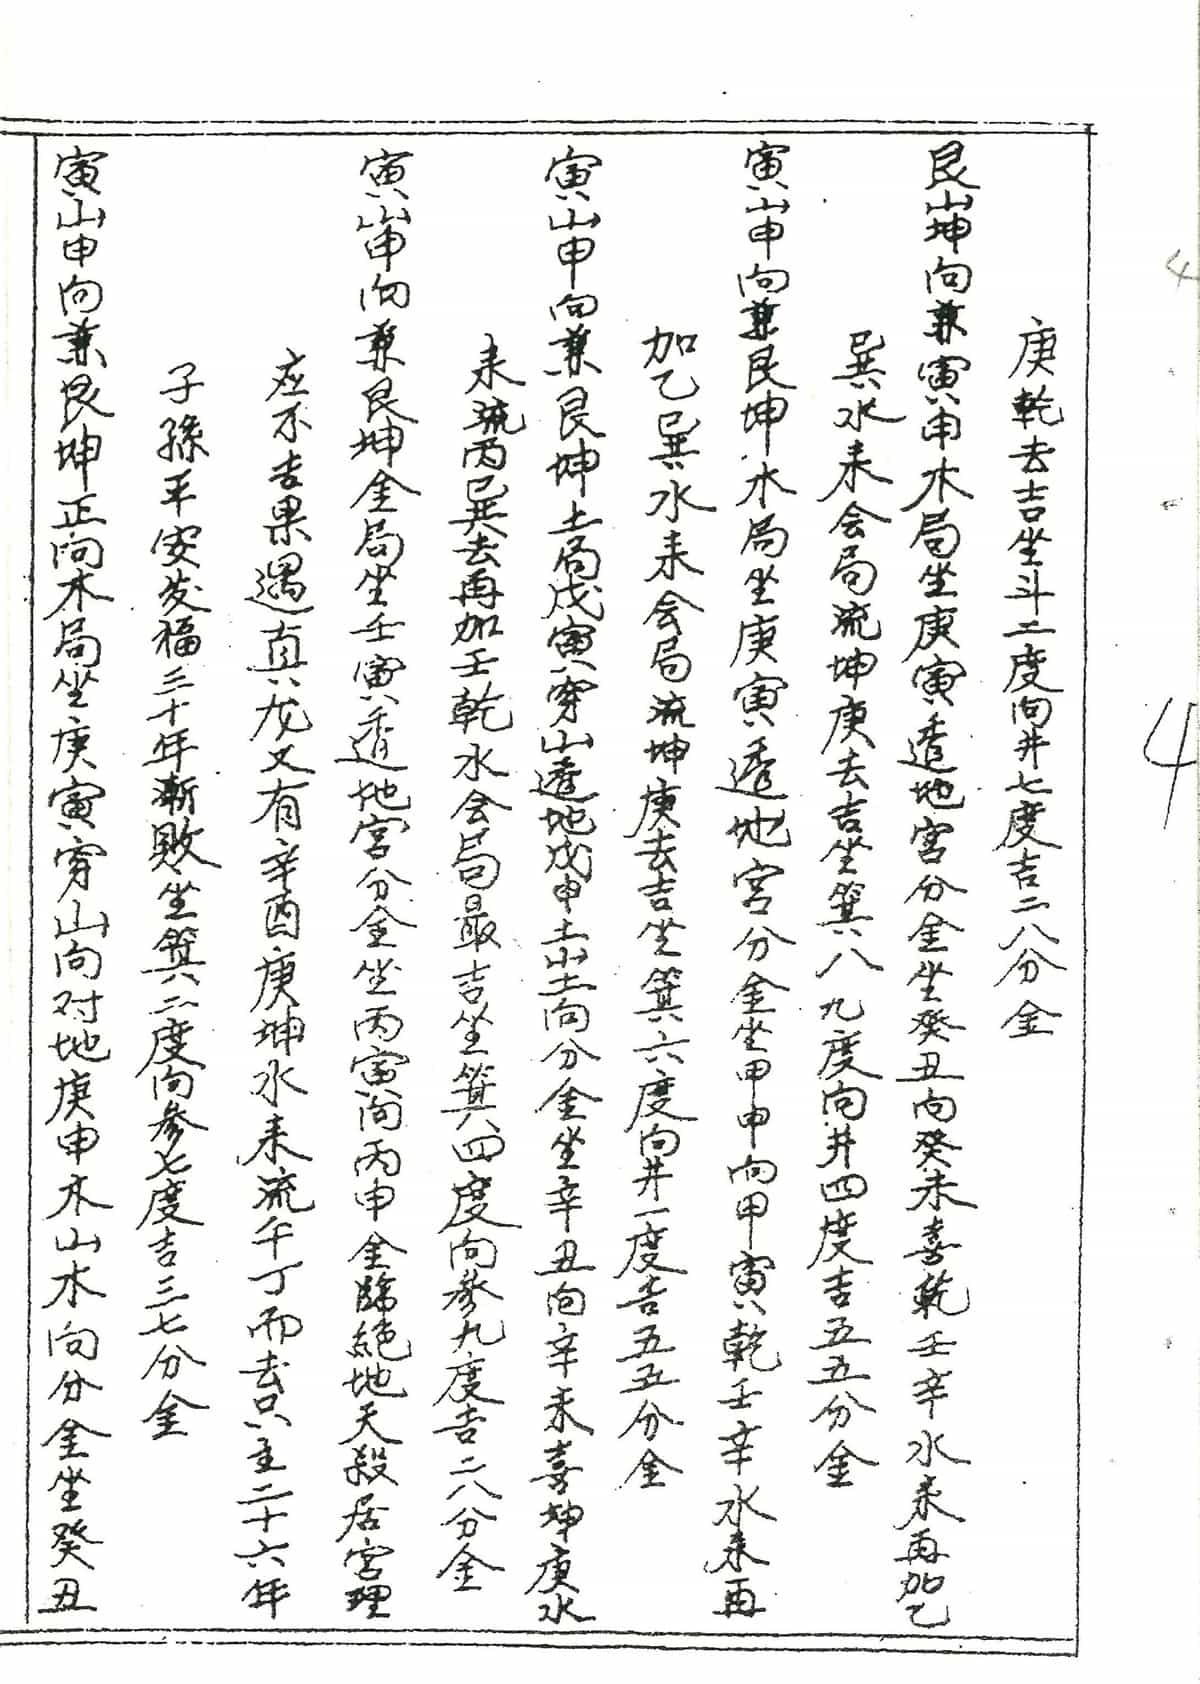 庚乾去吉坐斗二度向井七度吉二八分金
艮山坤向兼寅申木局坐庚寅透地宮分金坐癸丑向癸未喜乾壬辛水来再加乙
巽水来会局流坤庚去吉坐箕八九度向井四度吉五五分金
寅山申向兼艮坤木局坐庚寅透地宮分金坐甲申向甲寅乾壬辛水来再
加乙巽水来会局流坤庚去吉坐箕六度向井一度吉五五分金
寅山申向兼艮坤土局戊寅穿山透地戊申土山土向分金坐辛丑向辛未喜坤庚水
来流丙巽去再加壬乾水会局最吉坐箕四度向參九度吉二八分金
寅山申向兼艮坤金局坐壬寅透地宮分金坐丙寅向丙申金臨絕地天殺居宮理
应不吉果遇真龙又有辛酉庚坤水来流午丁而去只主二十六年
子孫平安发福三十年漸敗坐箕二度向參七度吉三七分金
寅山申向兼艮坤正向木局坐庚寅穿山向对地庚申木山木向分金坐癸丑
4
4